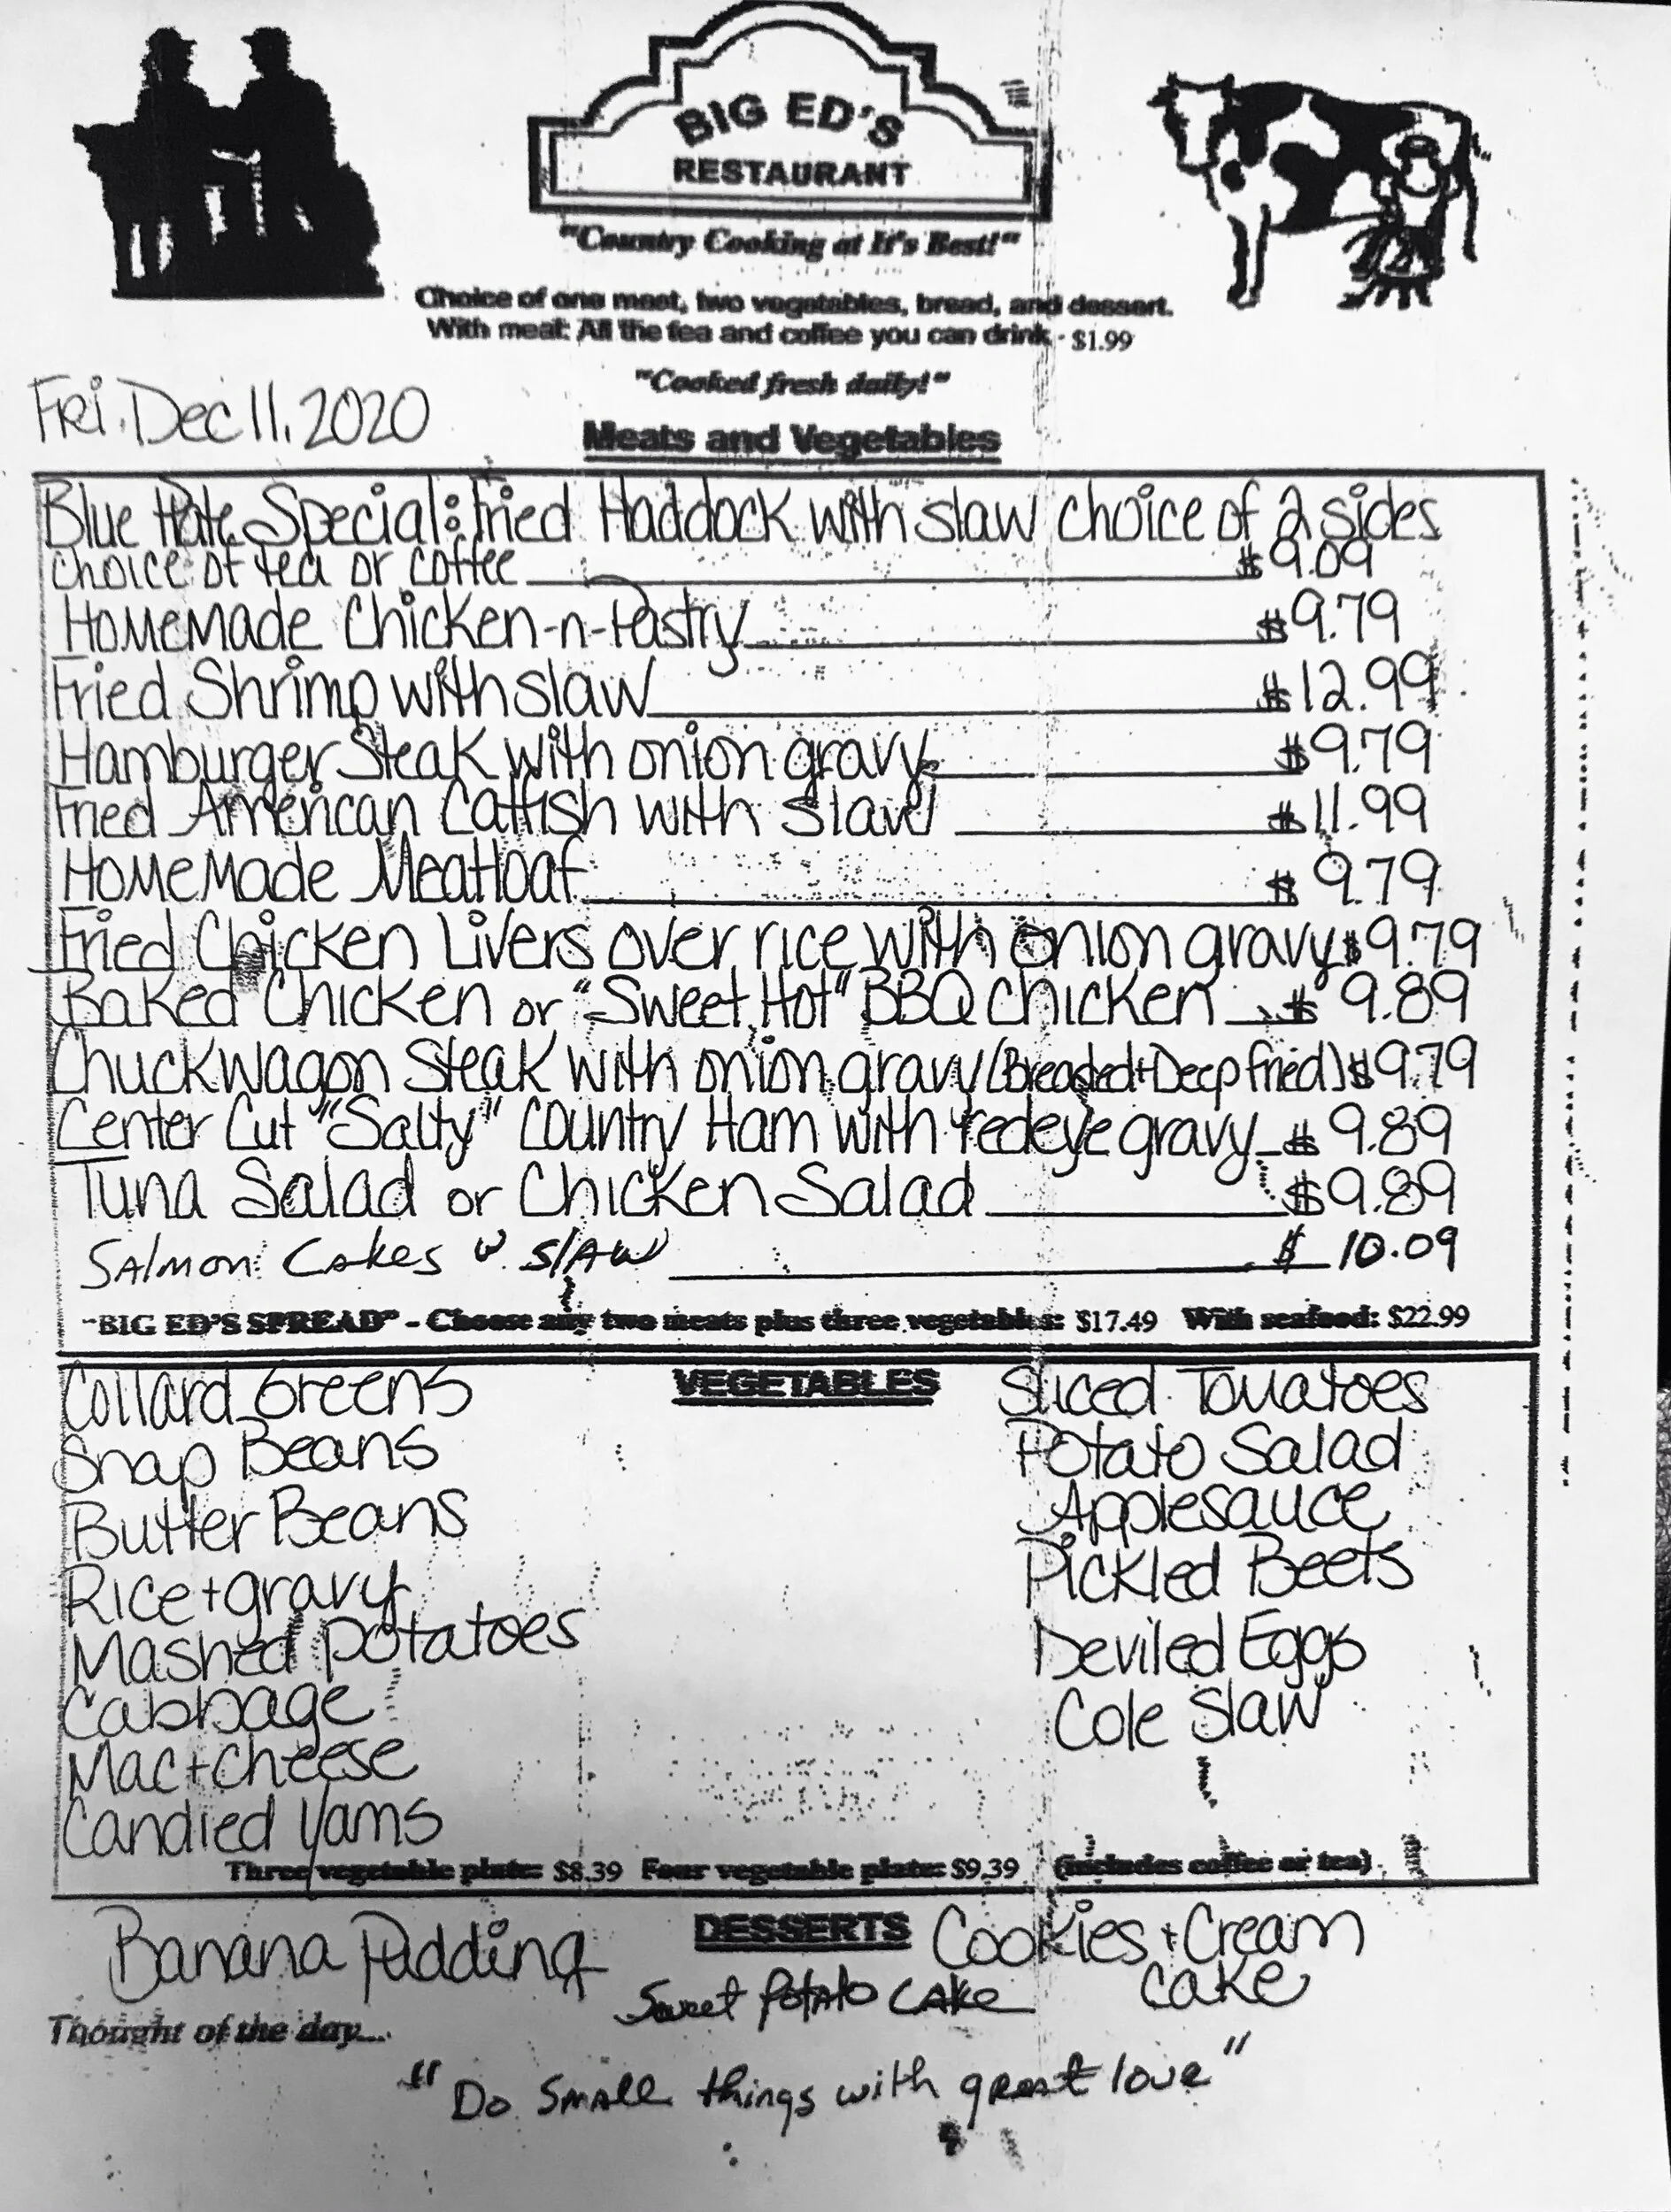 BIG ED'S
RESTAURANT
"Country Cooking at It's Best!"
Choice of one meat, two vegetables, bread, and dessert.
With meal: All the tea and coffee you can drink - $1.99
"Cooked fresh daily!"
Fri. Dec 11, 2020
Meats and Vegetables
Blue Plate Special: Fried Haddock with slaw choice of 2 sides
choice of tea or coffee $9.09
Homemade Chicken-n-Pastry $9.79
Fried Shrimp with slaw $12.99
Hamburger Steak with onion gravy $9.79
Fried American Catfish with slaw $11.99
Homemade Meatloaf $9.79
Fried Chicken Livers over rice with onion gravy $9.79
Baked Chicken or "Sweet, Hot" BBQ Chicken $9.89
Chuckwagon Steak with onion gravy (Breaded + Deep fried) $9.79
Center Cut "Salty" Country Ham with redeye gravy $9.89
Tuna Salad or Chicken Salad $9.89
Salmon Cakes w slaw $10.09
"BIG ED'S SPREAD" - Choose any two meats plus three vegetables: $17.49 With seafood: $22.99
VEGETABLES
Collard Greens
Snap Beans
Butter Beans
Rice + gravy
Mashed Potatoes
Cabbage
Mac + Cheese
Candied Yams
Sliced Tomatoes
Potato Salad
Applesauce
Pickled Beets
Deviled Eggs
Cole Slaw
Three vegetable plate: $8.39 Four vegetable plate: $9.39 (includes coffee or tea)
DESSERTS
Banana Pudding
Sweet Potato Cake
Cookies + Cream
Cake
Thought of the day...
"Do small things with great love"